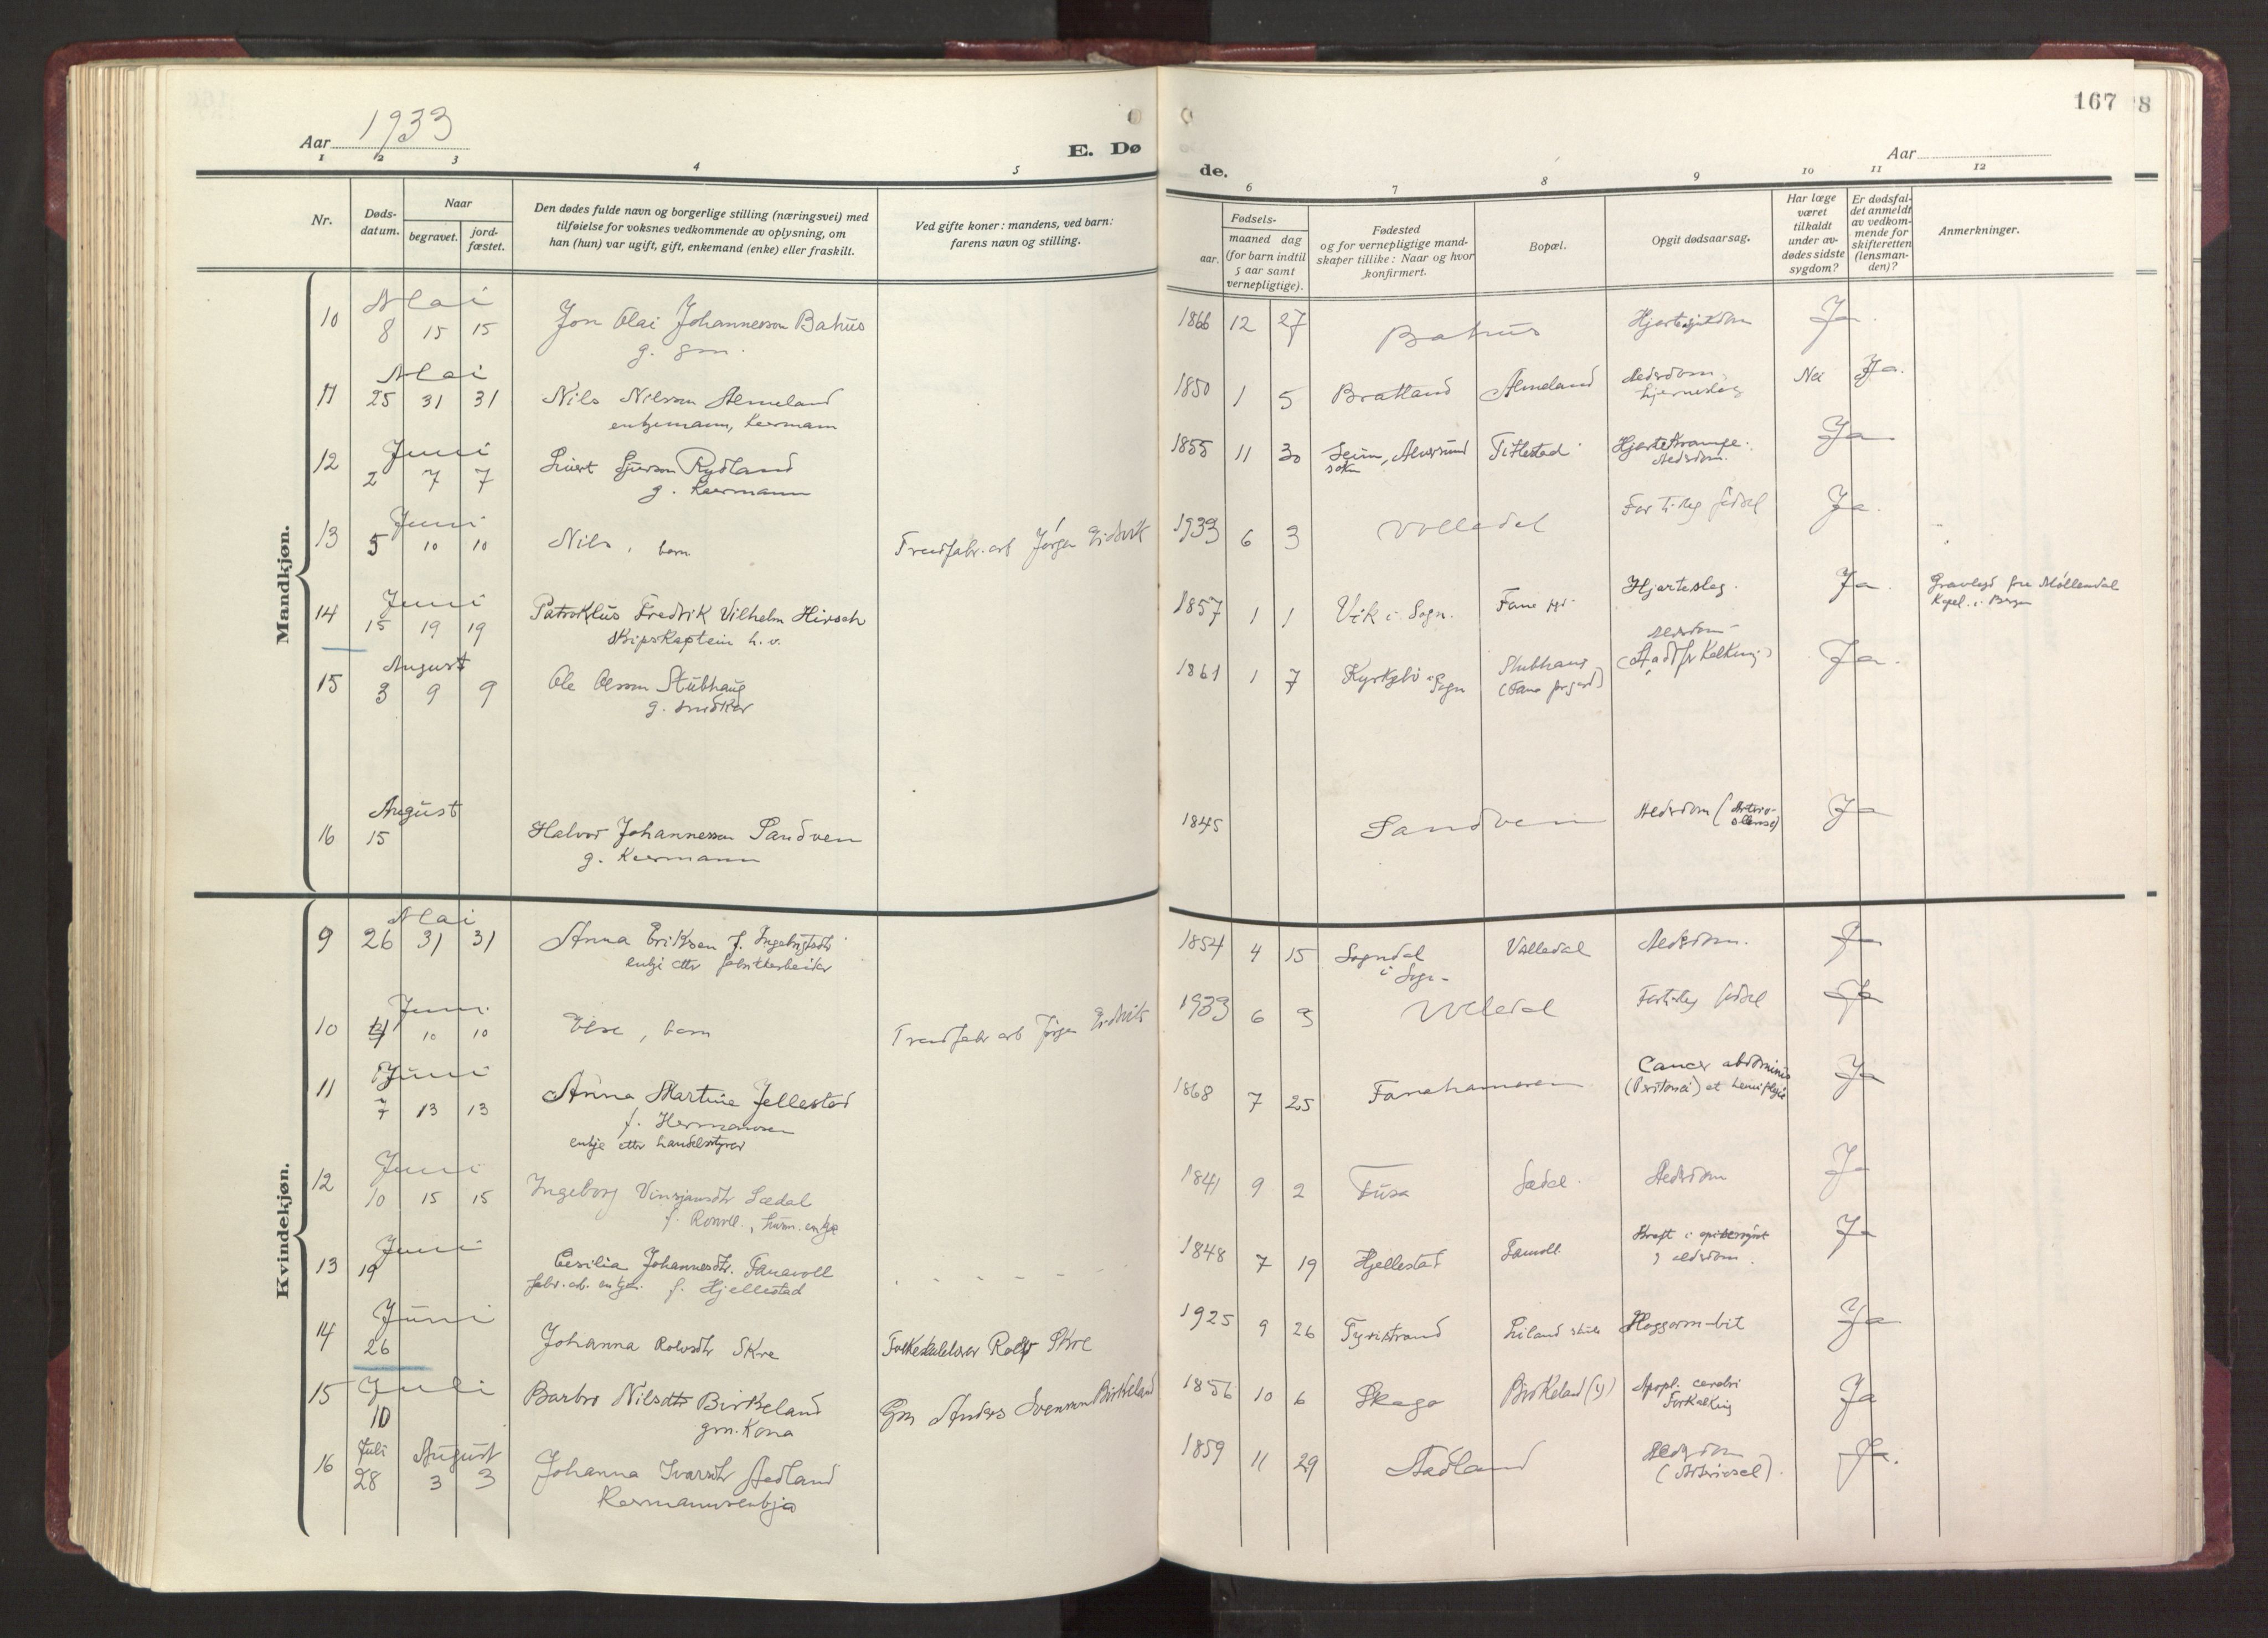 167
8
Aar 1933
E. Dø
de.
Aar
1 2 3 4 5 6 7 8 9 10 11 12
Nr.
Døds-
datum.
Naar
begravet.
jord-
fæstet.
Den dødes fulde navn og borgerlige stilling (næringsvei) med
tilføielse for voksnes vedkommende av oplysning, om
han (hun) var ugift, gift, enkemand (enke) eller fraskilt.
Ved gifte koner: mandens, ved barn:
farens navn og stilling.
Fødsels-
aar.
maaned dag
(for barn indtil
5 aar samt
vernepligtige).
Fødested
og for vernepligtige mand-
skaper tillike: Naar og hvor
konfirmert.
Bopæl.
Opgit dødsaarsag.
Har læge
været
tilkaldt
under av-
dødes sidste
sygdom?
Er dødsfal-
det anmeldt
av vedkom-
mende for
skifteretten
(lensman-
den)?
Anmerkninger.
Mandkjøn.
Mai
10 8 15 15 Jon Olai Johannesson Bahus 1866 12 27 Bahus Hjartesjukdom Ja.
g. gm.
Mai
11 25 31 31 Nils Nilsson Almeland 1850 1 5 Bratland Almeland Aldrdom. Nei Ja.
enkjemann, kårmann hjerneslag
Juni
12 2 7 7 Sjurson Rydland 1855 11 30 Seim, Alversund Titlestad Hjartekrampe. Ja
g. kårmann sokn Aldrdom.
Juni
13 5 10 10 Nils, barn Jørgen Eidsvik 1933 6 3 Ulledal For tidleg fødsel Ja.
Juni
14 15 19 19 Patroklus Fredrik Vilhelm Hirsch 1857 1 1 Vik i Sogn. Fana Hjarteslag. Ja. Gravlagd fra Møllendal
Skipskaptein h.v. Kapel. i Bergen
August
15 3 9 9 Ole Olsson Stubhaug 1861 1 7 Kyrkjebø i Sogn Stubhaug Aldrdom Ja.
g. snidkar
August
16 15 Halvor Johannesson Sandven 1845 Sandven Aldrdom Ja
g. Kårmann
Kvindekjøn.
Mai
9 26 31 31 Anna Eriksen f. 1854 4 15 Sogndal Ulledal Aldrdom. Ja
enkje etter fabrikkarbeidar i Sogn
Juni
10 4 10 10 Else, barn Jørgen Eidsvik 1933 6 3 Ulledal For tidleg fødsel Ja
Juni
11 7 13 13 Anna Martine Jellestad 1868 7 25 Fanahammeren Cancer abdominis Ja
f. Hermansen (Peritonei) et hemiplegie
enkje etter handelsstyrar
Juni
12 10 15 15 Ingeborg Vinsjansdtr Sædal 1841 9 2 Fusa Sædal. Aldrdom Ja
Juni
13 19 Cesilia Johannesdtr. Fanavoll 1848 7 19 Hjellestad Fanavoll Kreft i spiserøret Ja
fabr. arb. enkje. f. Hjellestad og aldrdom.
Juni
14 26 Johanna Rolvsdtr Skre Folkeskulelærar Rolv Skre 1925 9 26 Tyristrand Liland skule Hoggorm-bit Ja
Juli
15 10 Barbro Nilsdtr Birkeland Gm Anders Svenson Birkeland 1856 10 6 Skage Birkeland Apopl. cerebri Ja
gm. kona Forkalking
Juli August
16 28 3 3 Johanna Ivarsdtr Aadland 1859 11 29 Aadland Aldrdom Ja.
Kårmannsenkja (Arterioscl.).